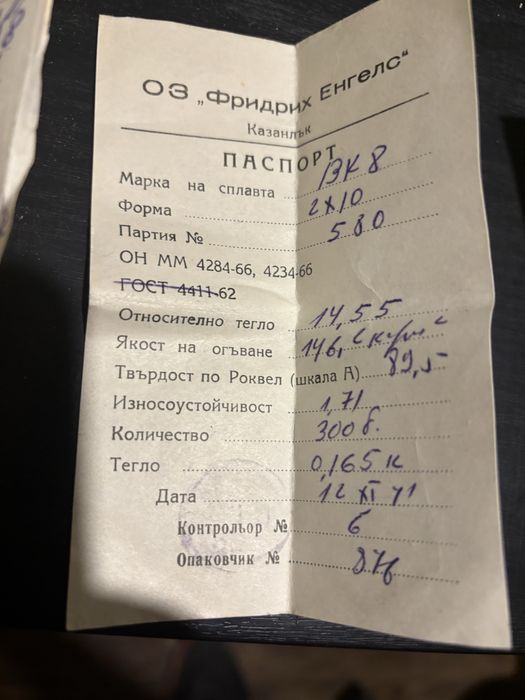 ОЗ „Фридрих Енгелс“
Казанлък
ПАСПОРТ
Марка на сплавта ВК 8
Форма 2х10
Партия № 580
ОН ММ 4284-66, 4234-66
ГОСТ 4411-62
Относително тегло 14,55
Якост на огъване 146,
Твърдост по Роквел (шкала А) 89,5
Износоустойчивост 1,71
Количество 300 б.
Тегло 0,165 к
Дата 12 XI 71
Контрольор № 6
Опаковчик №